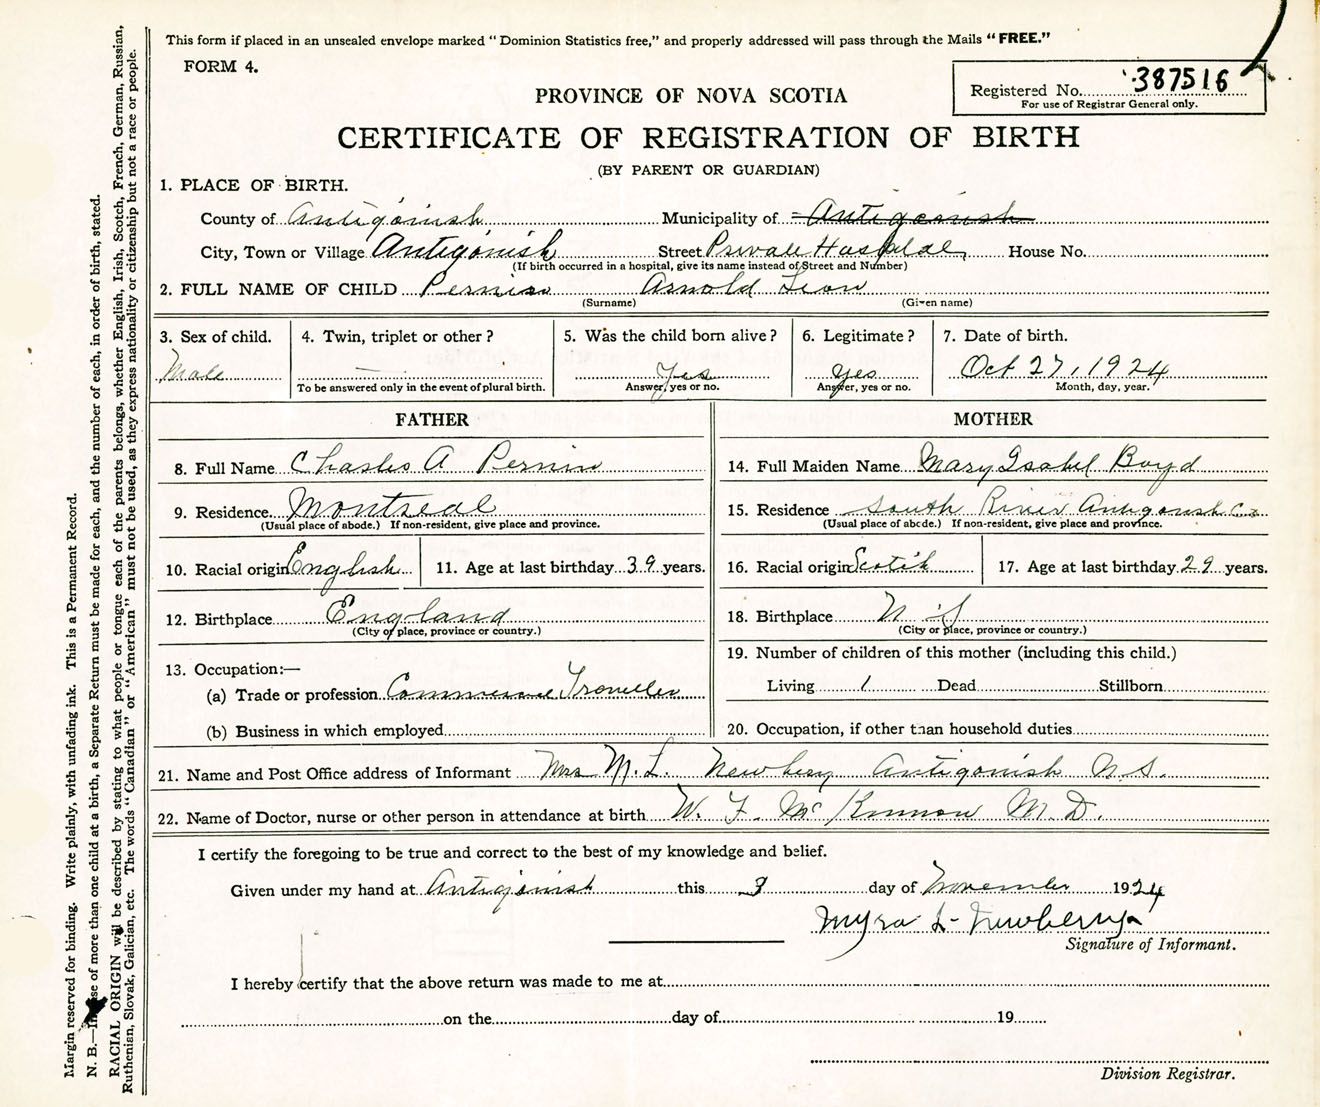 This form if placed in an unsealed envelope marked "Dominion Statistics free," and properly addressed will pass through the Mails "FREE."
FORM 4.
Registered No. 387516
For use of Registrar General only.
PROVINCE OF NOVA SCOTIA
CERTIFICATE OF REGISTRATION OF BIRTH
(BY PARENT OR GUARDIAN)
1. PLACE OF BIRTH.
County of Antigonish Municipality of Antigonish
City, Town or Village Antigonish Street Private Hospital House No.
(If birth occurred in a hospital, give its name instead of Street and Number)
2. FULL NAME OF CHILD Pernin Arnold Leon
(Surname) (Given name)
3. Sex of child. 4. Twin, triplet or other? 5. Was the child born alive? 6. Legitimate? 7. Date of birth.
Male — Yes Yes Oct 27, 1924
To be answered only in the event of plural birth. Answer, yes or no. Answer, yes or no. Month, day, year.
FATHER
8. Full Name Charles A Pernin
9. Residence Montreal
(Usual place of abode.) If non-resident, give place and province.
10. Racial origin English 11. Age at last birthday 39 years.
12. Birthplace England
(City or place, province or country.)
13. Occupation:—
(a) Trade or profession Commercial Traveller
(b) Business in which employed
MOTHER
14. Full Maiden Name Mary Isabel Boyd
15. Residence South River Antigonish Co
(Usual place of abode.) If non-resident, give place and province.
16. Racial origin Scotch 17. Age at last birthday 29 years.
18. Birthplace N.S
(City or place, province or country.)
19. Number of children of this mother (including this child.)
Living 1 Dead Stillborn
20. Occupation, if other than household duties
21. Name and Post Office address of Informant Mrs M. L. Newbery Antigonish N.S.
22. Name of Doctor, nurse or other person in attendance at birth W. F. McKinnon M.D.
I certify the foregoing to be true and correct to the best of my knowledge and belief.
Given under my hand at Antigonish this 3 day of November 1924
Myra L. Newbery
Signature of Informant.
I hereby certify that the above return was made to me at
on the day of 19
Division Registrar.
Margin reserved for binding. Write plainly, with unfading ink. This is a Permanent Record.
N. B.—In case of more than one child at a birth, a Separate Return must be made for each, and the number of each, in order of birth, stated.
RACIAL ORIGIN will be described by stating to what people or tongue each of the parents belongs, whether English, Irish, Scotch, French, German, Russian,
Ruthenian, Slovak, Galician, etc. The words "Canadian" or "American" must not be used, as they express nationality or citizenship but not a race or people.